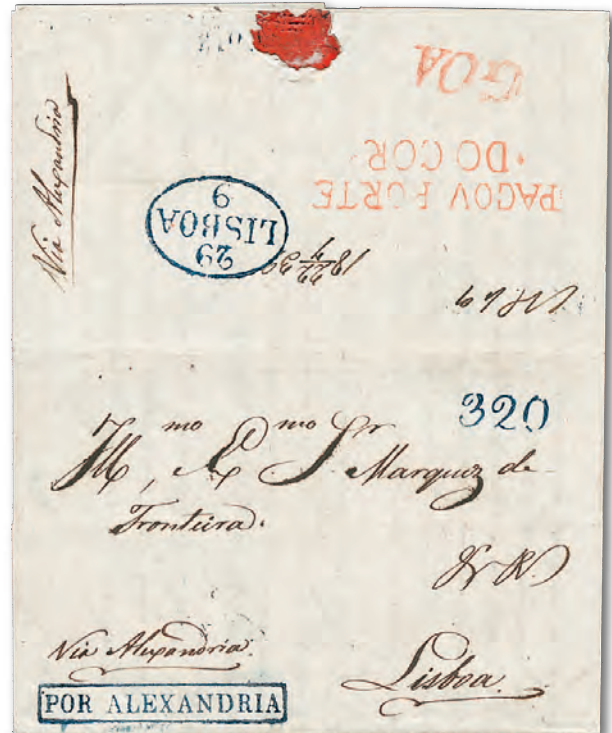 GOA
PAGOV PORTE
DO COR
Via Alexandria
29
LISBOA
9
320
Ill.mo, E.mo Sr. Marquez de
Fronteira.
Via Alexandria.
Lisboa.
POR ALEXANDRIA